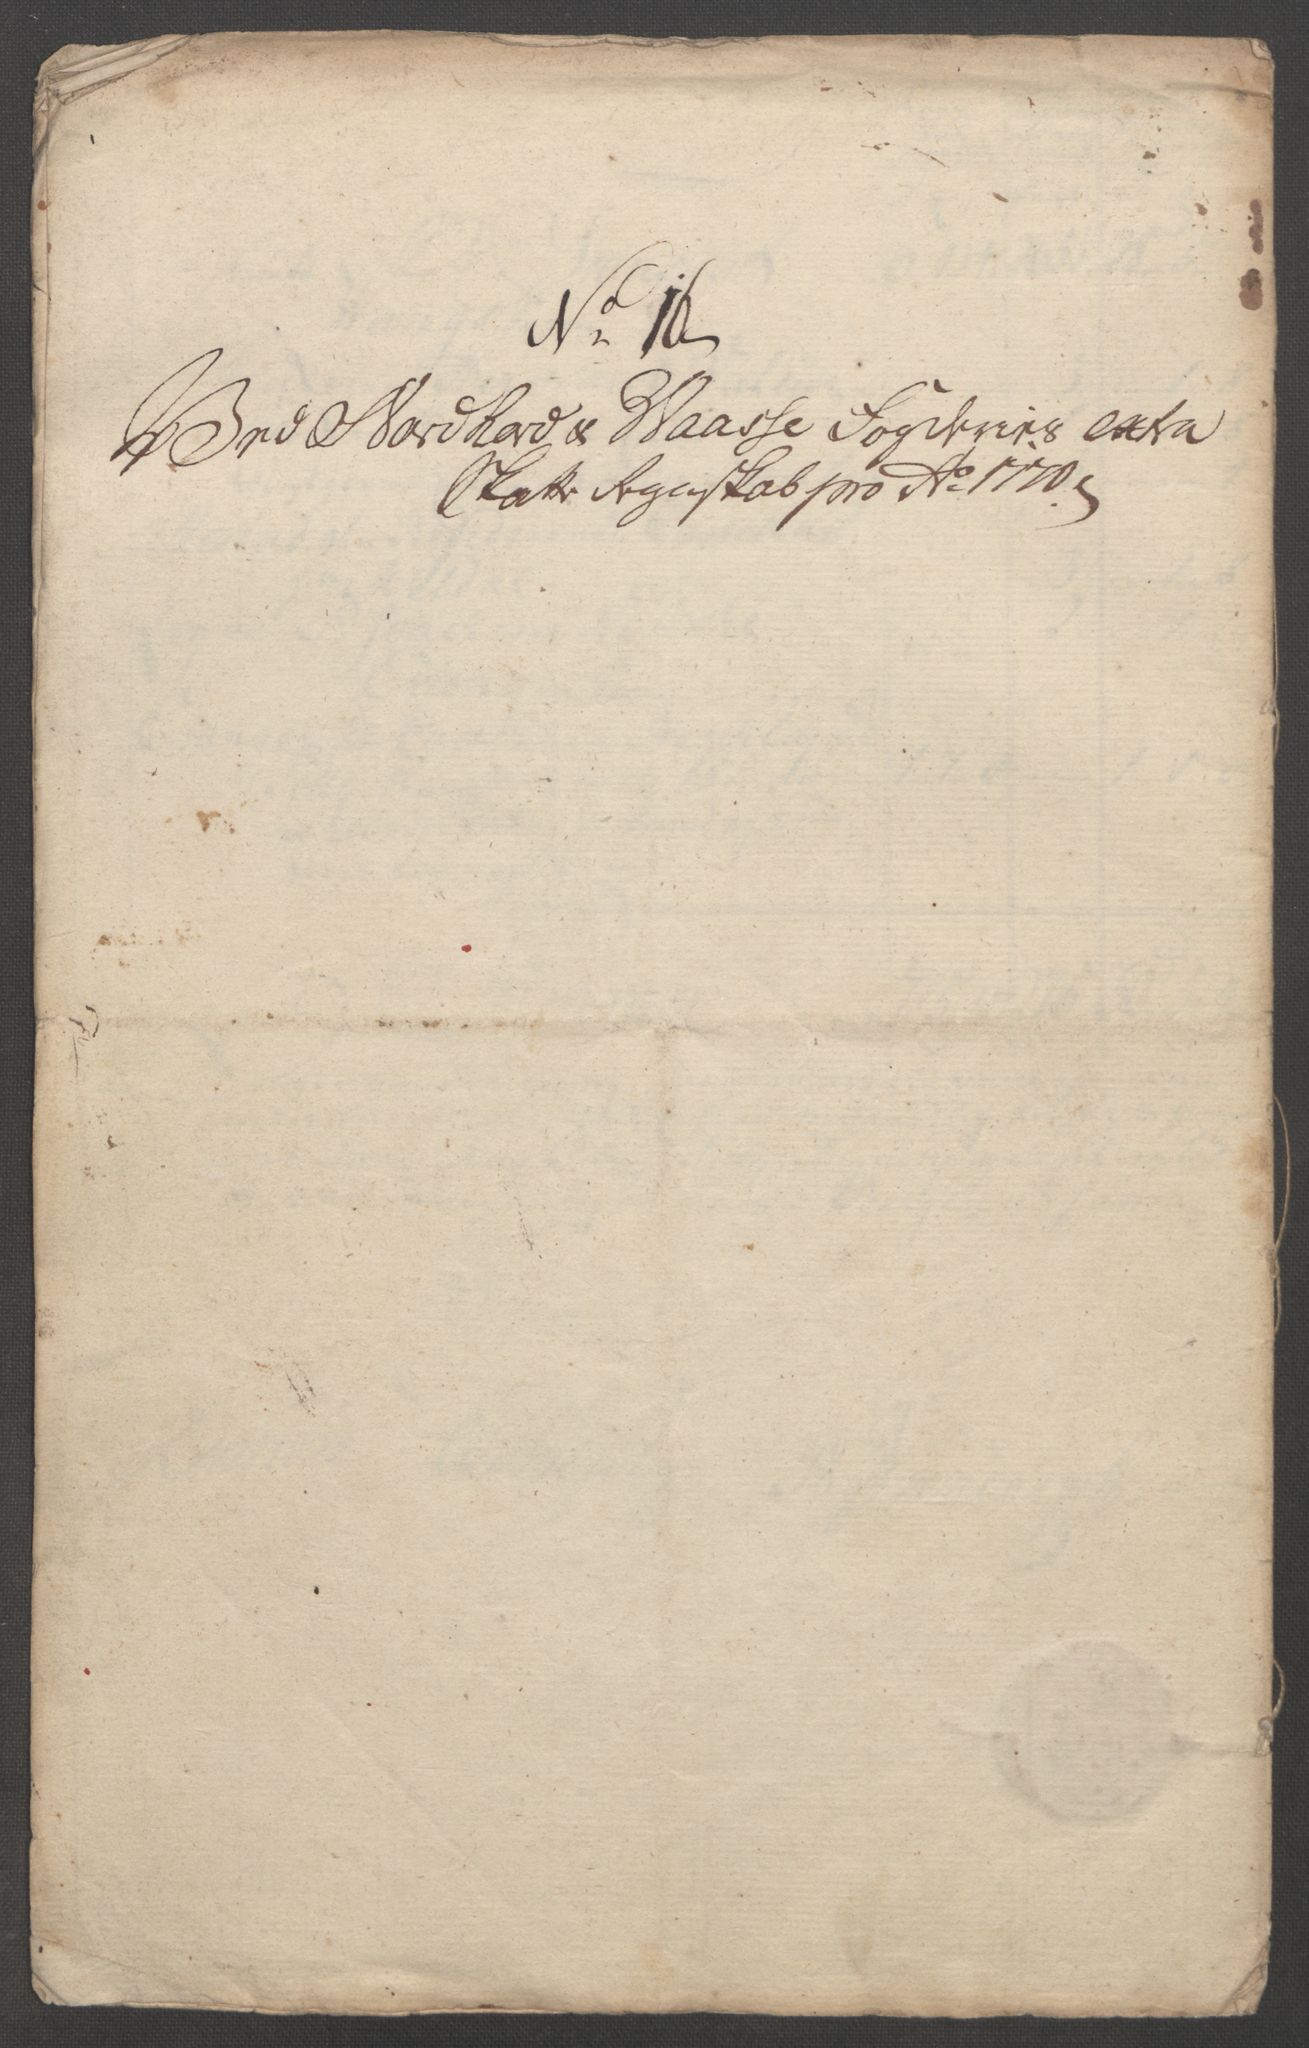 No 16
Ved Nordhord & Waasse Fogderies extra
Skatte Regnskab pro Ao 1770